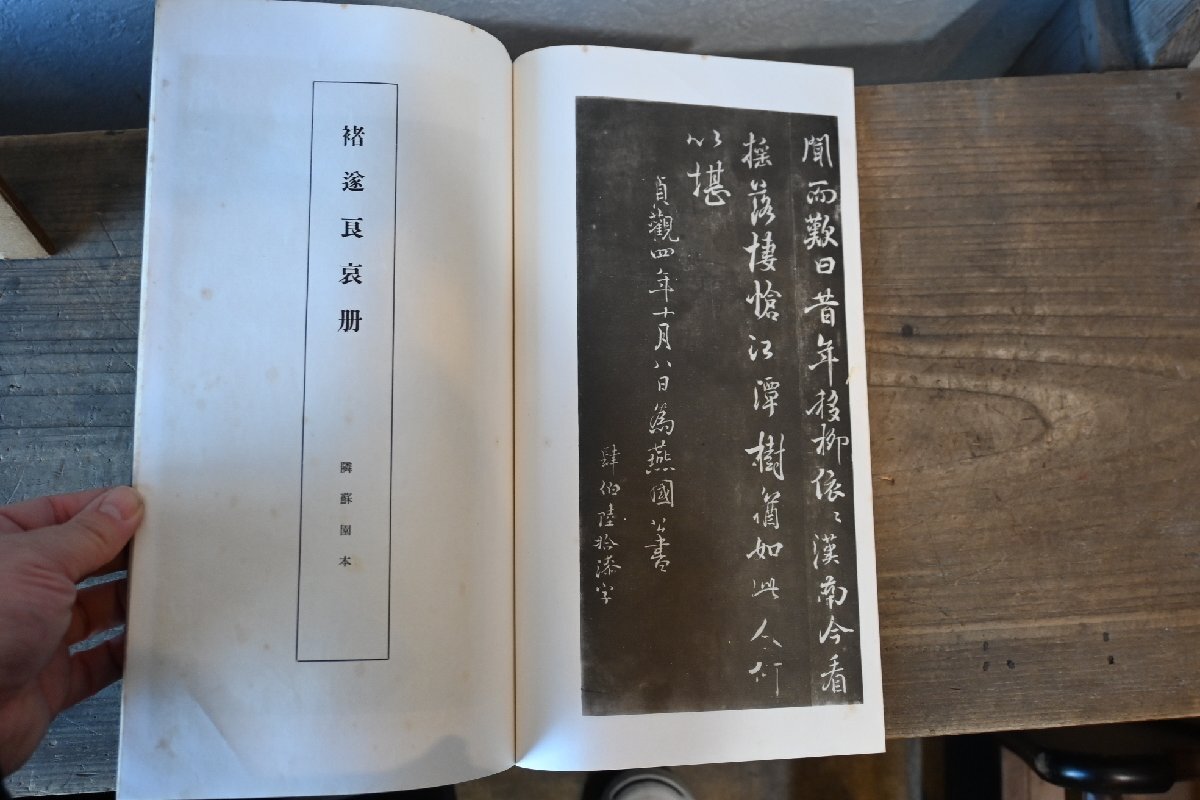 聞而歎曰昔年移柳依〻漢南今看
搖落悽愴江潭樹猶如此人何
以堪
貞觀四年十月八日為燕國公書
肆伯陸拾漆字
褚遂良哀册
隣蘇園本